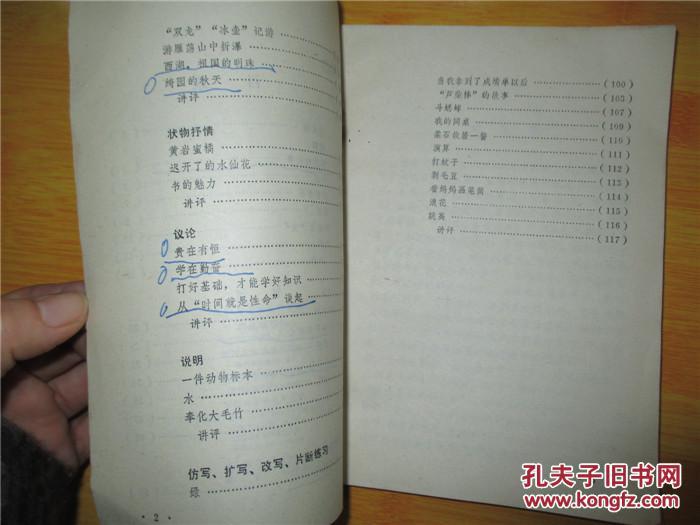 “双龙”“冰壶”记游
游雁荡山中折瀑
西湖，祖国的明珠
绮园的秋天
讲评
状物抒情
黄岩蜜橘
迟开了的水仙花
书的魅力
讲评
议论
贵在有恒
学在勤奋
打好基础，才能学好知识
从“时间就是性命”谈起
讲评
说明
一件动物标本
水
奉化大毛竹
讲评
仿写、扩写、改写、片断练习
绿
· 2 ·
当我拿到了成绩单以后 (100)
的故事 (105)
斗蟋蟀 (107)
我的同桌 (109)
柔石故居一瞥 (110)
演算 (111)
打蚊子 (112)
剥毛豆 (113)
看妈妈画笔筒 (114)
浪花 (115)
跳高 (116)
讲评 (117)
孔夫子旧书网
www.kongfz.com